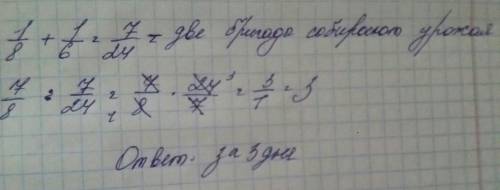 1/8 + 1/6 = 7/24 = две бригада собирского урожая
7/8 : 7/24 = 7/8 · 24/7 = 3/1 = 3
Ответ. за 3 дня